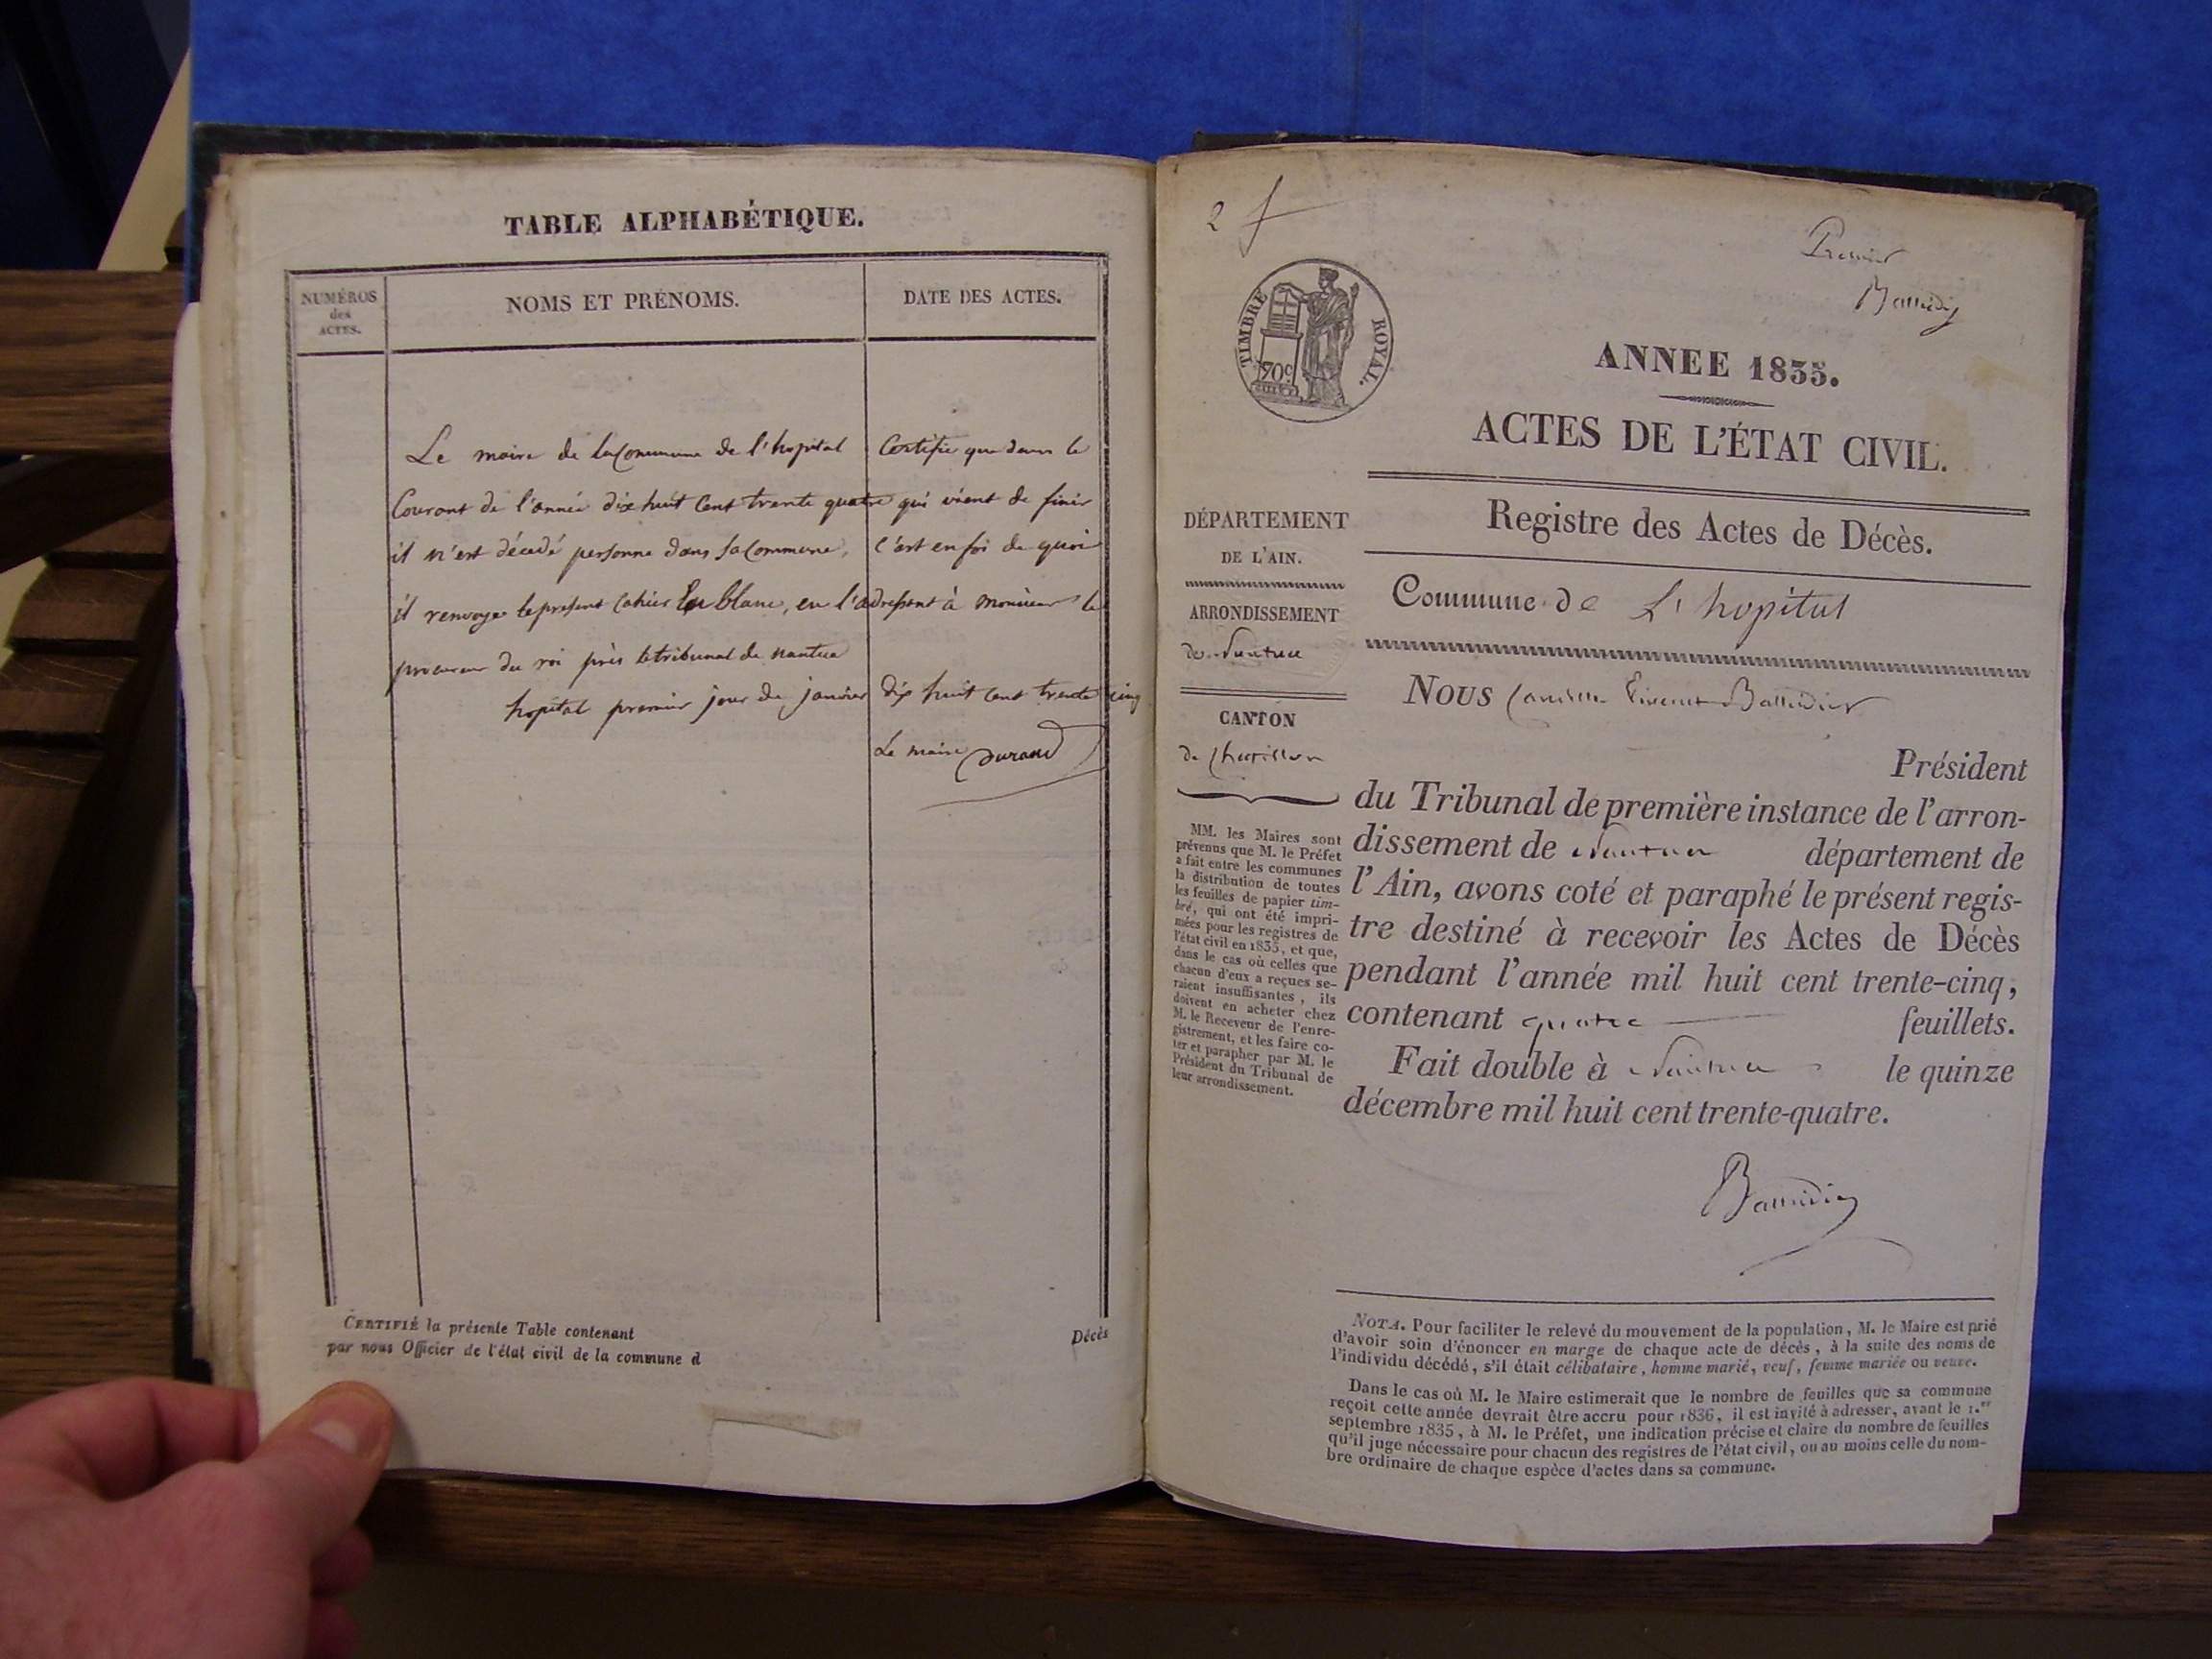 TABLE ALPHABÉTIQUE.
NUMÉROS
des
ACTES.
NOMS ET PRÉNOMS.
DATE DES ACTES.
Le maire de la Commune de l'hopital Certifie que dans le
Courant de l'année dix huit Cent trente quatre qui vient de finir
il n'est décedé personne dans sa Commune, C'est en foi de quoi
il renvoye le présent Cahier En blanc, en l'adressant à monsieur le
procureur du roi près le tribunal de nantua
hopital premier jour de janvier dix huit cent trente cinq
Le maire Durand
CERTIFIÉ la présente Table contenant
par nous Officier de l'état civil de la commune d
Décès
2
Premier
TIMBRE ROYAL.
70c
ANNEE 1835.
ACTES DE L'ÉTAT CIVIL.
Registre des Actes de Décès.
DÉPARTEMENT
DE L'AIN.
ARRONDISSEMENT
de Nantua
CANTON
de Chatillon
MM. les Maires sont
prévenus que M. le Préfet
a fait entre les communes
la distribution de toutes
les feuilles de papier tim-
bré, qui ont été impri-
mées pour les registres de
l'état civil en 1835, et que,
dans le cas où celles que
chacun d'eux a reçues se-
raient insuffisantes, ils
doivent en acheter chez
M. le Receveur de l'enre-
gistrement, et les faire co-
ter et parapher par M. le
Président du Tribunal de
leur arrondissement.
Commune de L'hopital
Nous
Président
du Tribunal de première instance de l'arron-
dissement de Nantua département de
l'Ain, avons coté et paraphé le présent regis-
tre destiné à recevoir les Actes de Décès
pendant l'année mil huit cent trente-cinq,
contenant quatre feuillets.
Fait double à Nantua le quinze
décembre mil huit cent trente-quatre.
NOTA. Pour faciliter le relevé du mouvement de la population, M. le Maire est prié
d'avoir soin d'énoncer en marge de chaque acte de décès, à la suite des noms de
l'individu décédé, s'il était célibataire, homme marié, veuf, femme mariée ou veuve.
Dans le cas où M. le Maire estimerait que le nombre de feuilles que sa commune
reçoit cette année devrait être accru pour 1836, il est invité à adresser, avant le 1.er
septembre 1835, à M. le Préfet, une indication précise et claire du nombre de feuilles
qu'il juge nécessaire pour chacun des registres de l'état civil, ou au moins celle du nom-
bre ordinaire de chaque espèce d'actes dans sa commune.